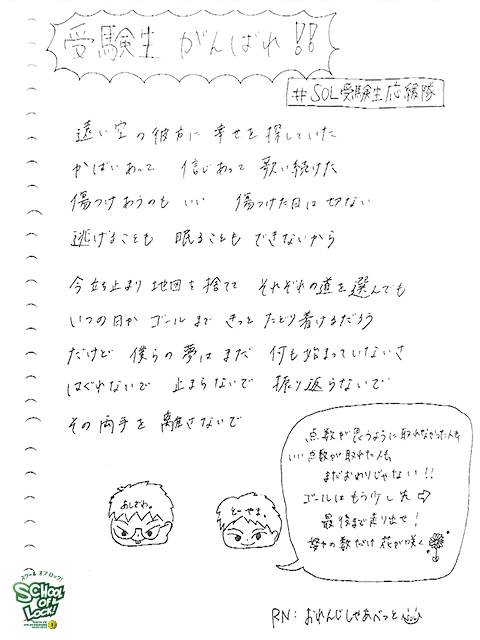 受験生 がんばれ!!
#SOL受験生応援隊
遠い空の彼方に 幸せを探していた
かばいあって 信じあって 歌い続けた
傷つけあうのも いい 傷つけた日は 切ない
逃げることも 眠ることも できないから
今立ち止まり 地図を捨てて それぞれの道を選んでも
いつの日か ゴールまで きっと たどり着けるだろう
だけど 僕らの夢は まだ 何も始まっていないさ
はぐれないで 止まらないで 振り返らないで
その両手を 離さないで
点数が思うように取れなかった人も
いい点数が取れた人も
まだおわりじゃない!!
ゴールはもう少し先⇨
最後まで走り出せ!
努力の数だけ 花が咲く
あしざわ。
とーやま。
スクール オブ ロック!
SCHOOL OF LOCK!
RN:おれんじしゃあべっと